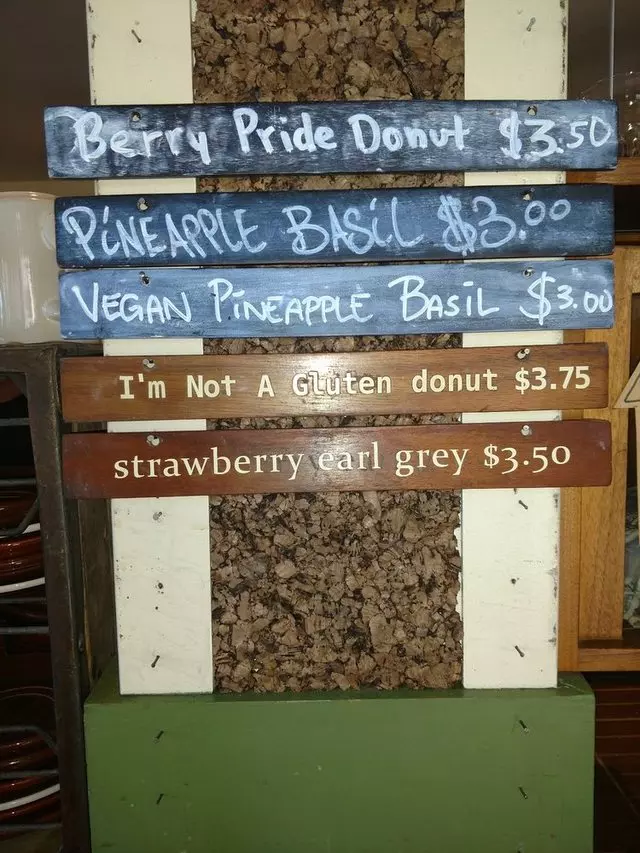 Berry Pride Donut $3.50
PiNEAPPLE BASiL $3.00
VEGAN PiNEAPPLE BASiL $3.00
I'm Not A Gluten donut $3.75
strawberry earl grey $3.50